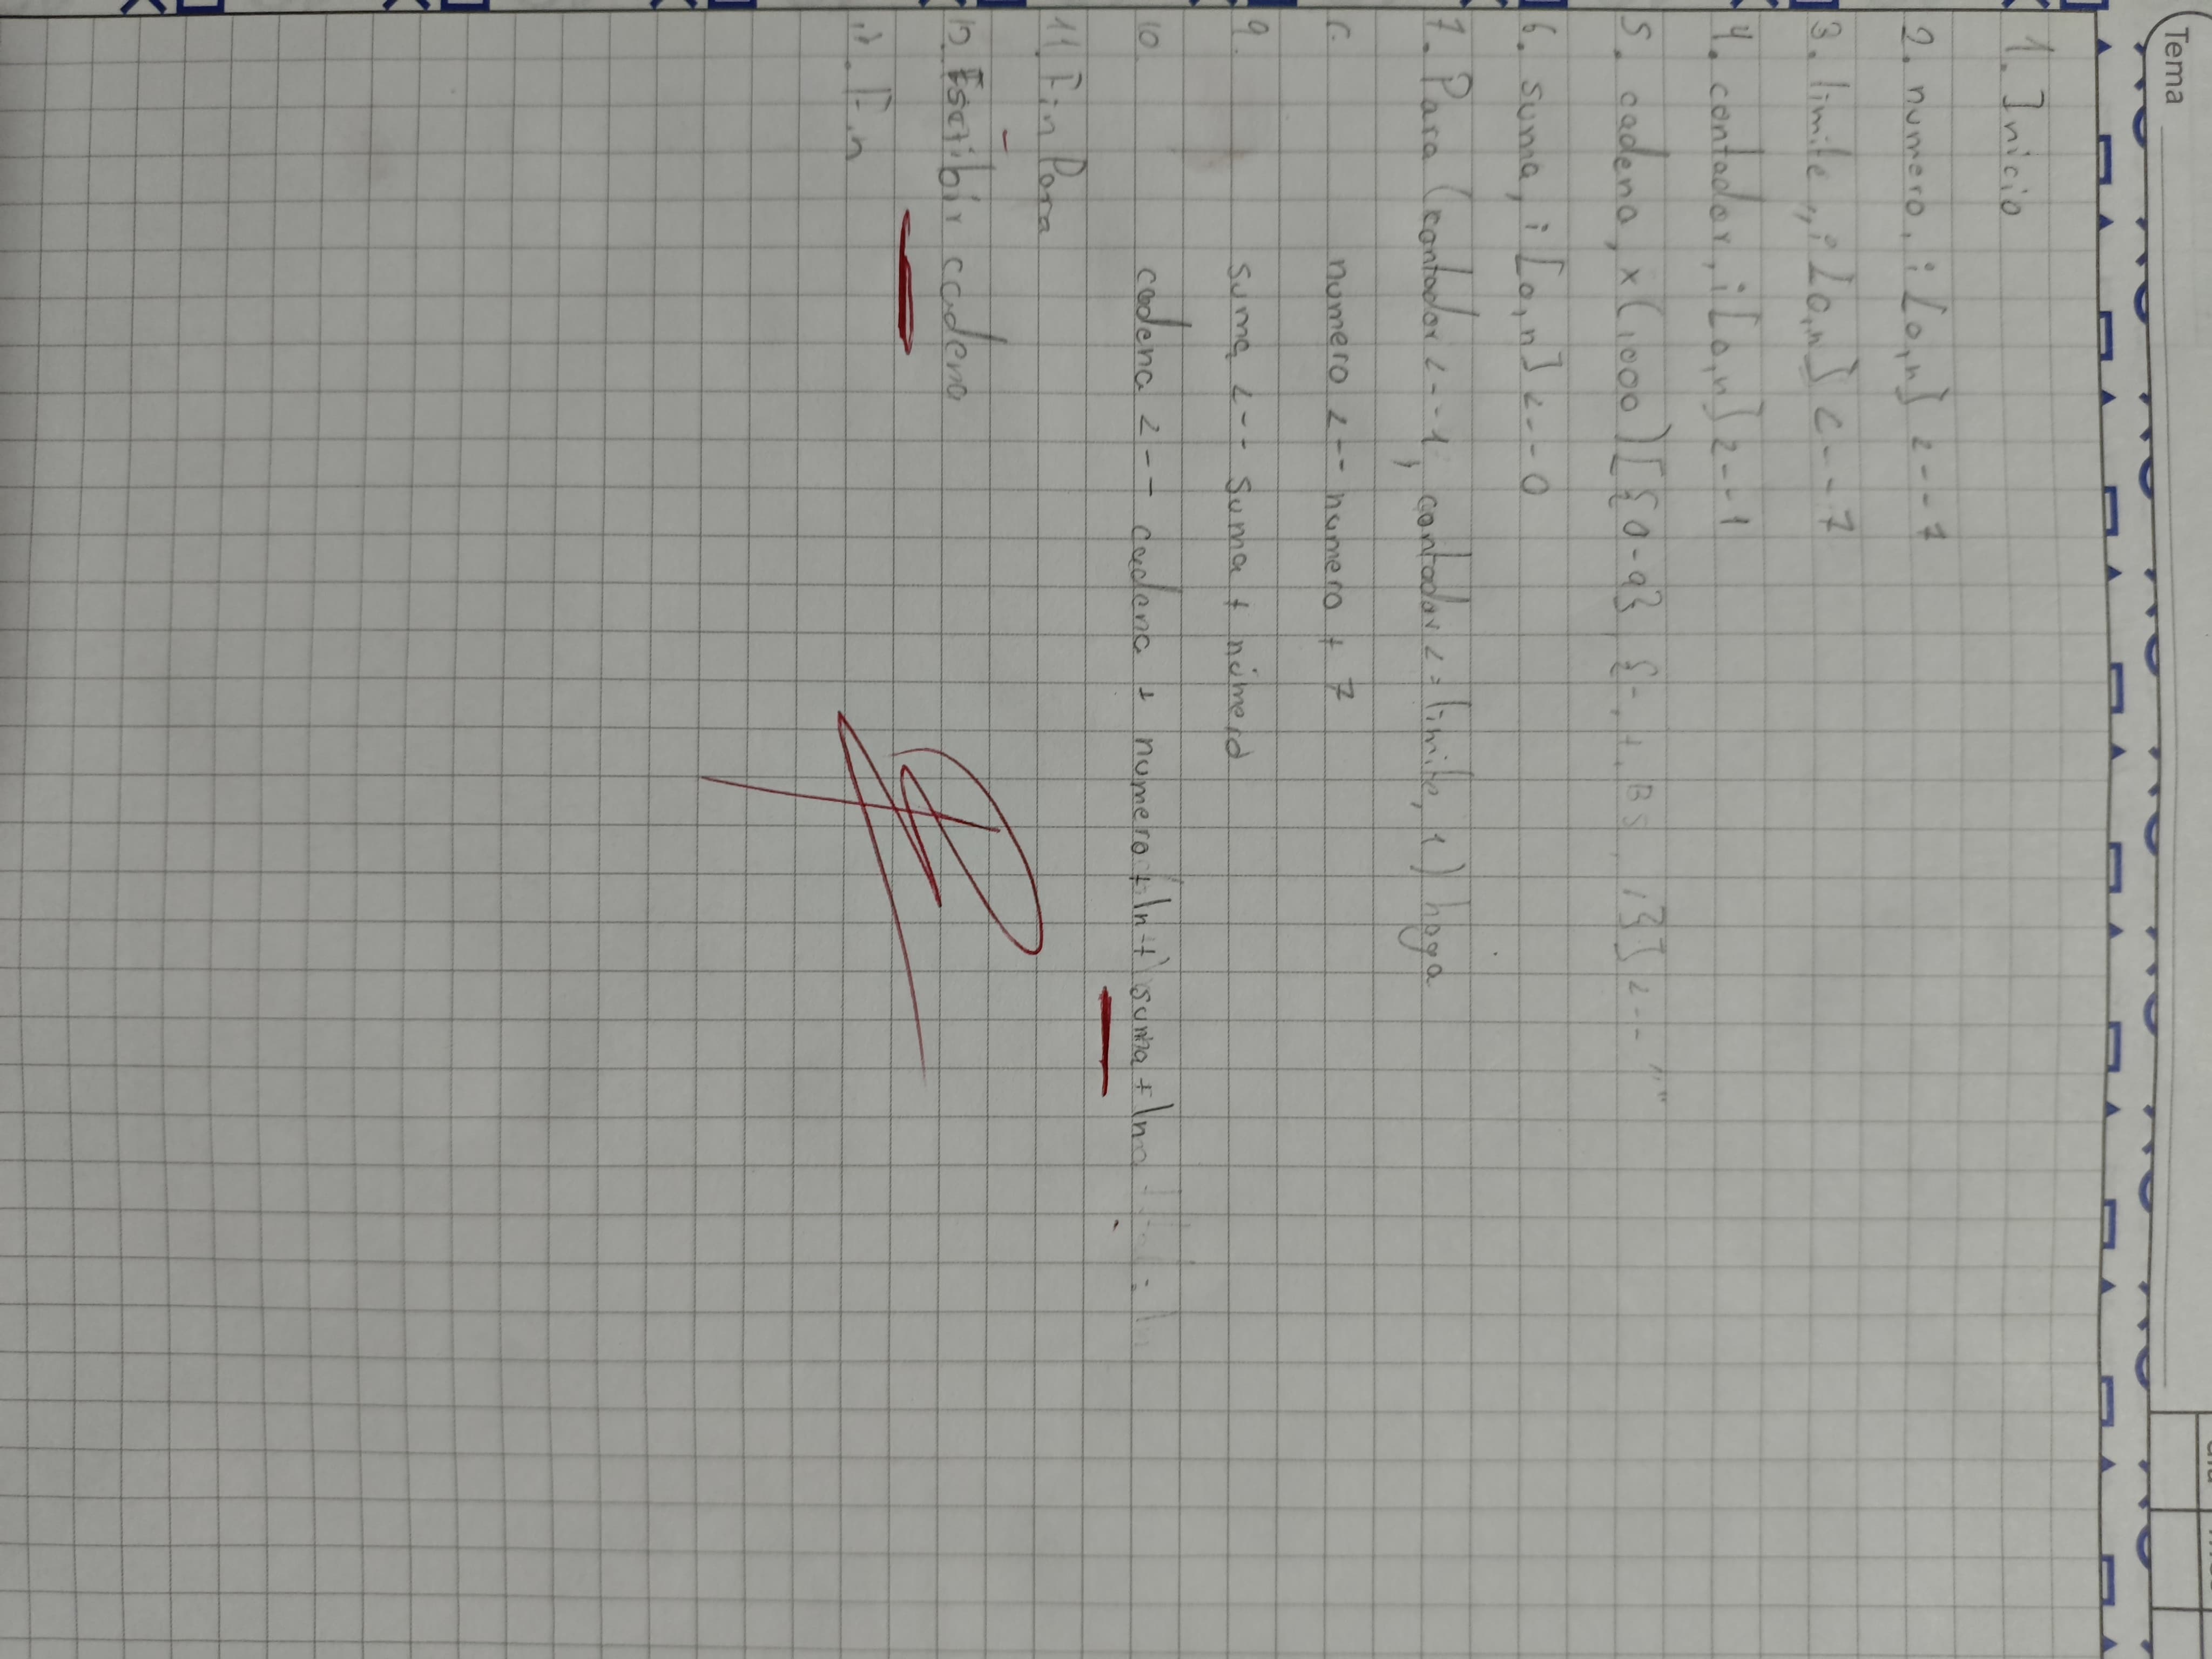 Tema
1. Inicio
2. numero, i [0,n] <--- 7
3. limite,, i [0,n] <--- 7
4. contador, i [0,n] <--- 1
5. cadena, x(1000) [{0-9} {-, +, BS, /}] <--- ""
6. suma, i [0,n] <--- 0
7. Para (contador <--- 1; contador <= limite, 1) haga
numero <-- numero + 7
9. suma <--- suma + número
10. cadena <--- cadena + numero + \n + \suma + \n
11. Fin Para
12. Escribir cadena
Fin